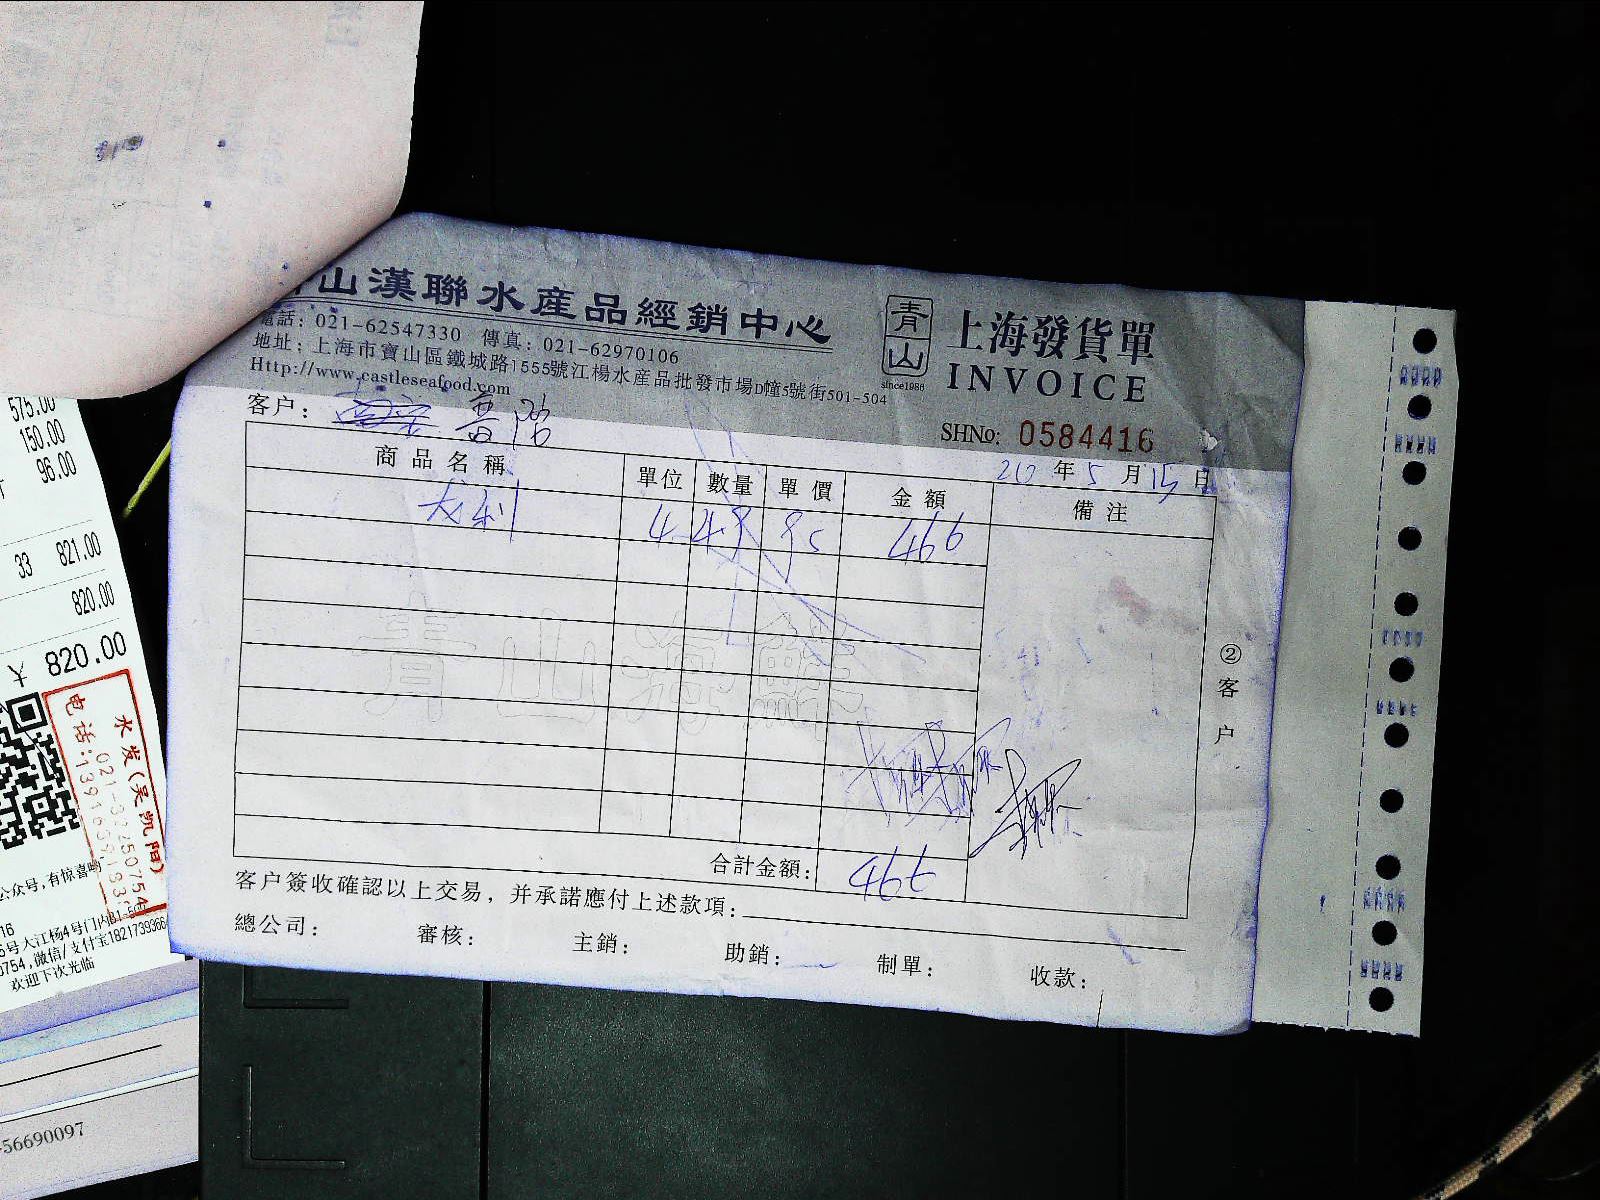 山漢聯水產品經銷中心
電話：021-62547330 傳真：021-62970106
地址：上海市寶山區鐵城路1555號江楊水產品批發市場D幢5號街501-504
Http://www.castleseafood.com
青山
since1988
上海發貨單
INVOICE
SHNo: 0584416
客户：
年5月15日
商品名稱 單位 數量 單價 金額 備注
龙利 4.49 95 466
青山海鮮
合計金額： 466
客户簽收確認以上交易，并承諾應付上述款項：
總公司： 審核： 主銷： 助銷： 制單： 收款：
②客户
575.00
150.00
96.00
33 821.00
820.00
820.00
水发(吴凯阳)
公众号,有惊喜哟
号大江杨4号门内B1-5
0754,微信/支付宝1821739366
欢迎下次光临
-56690097